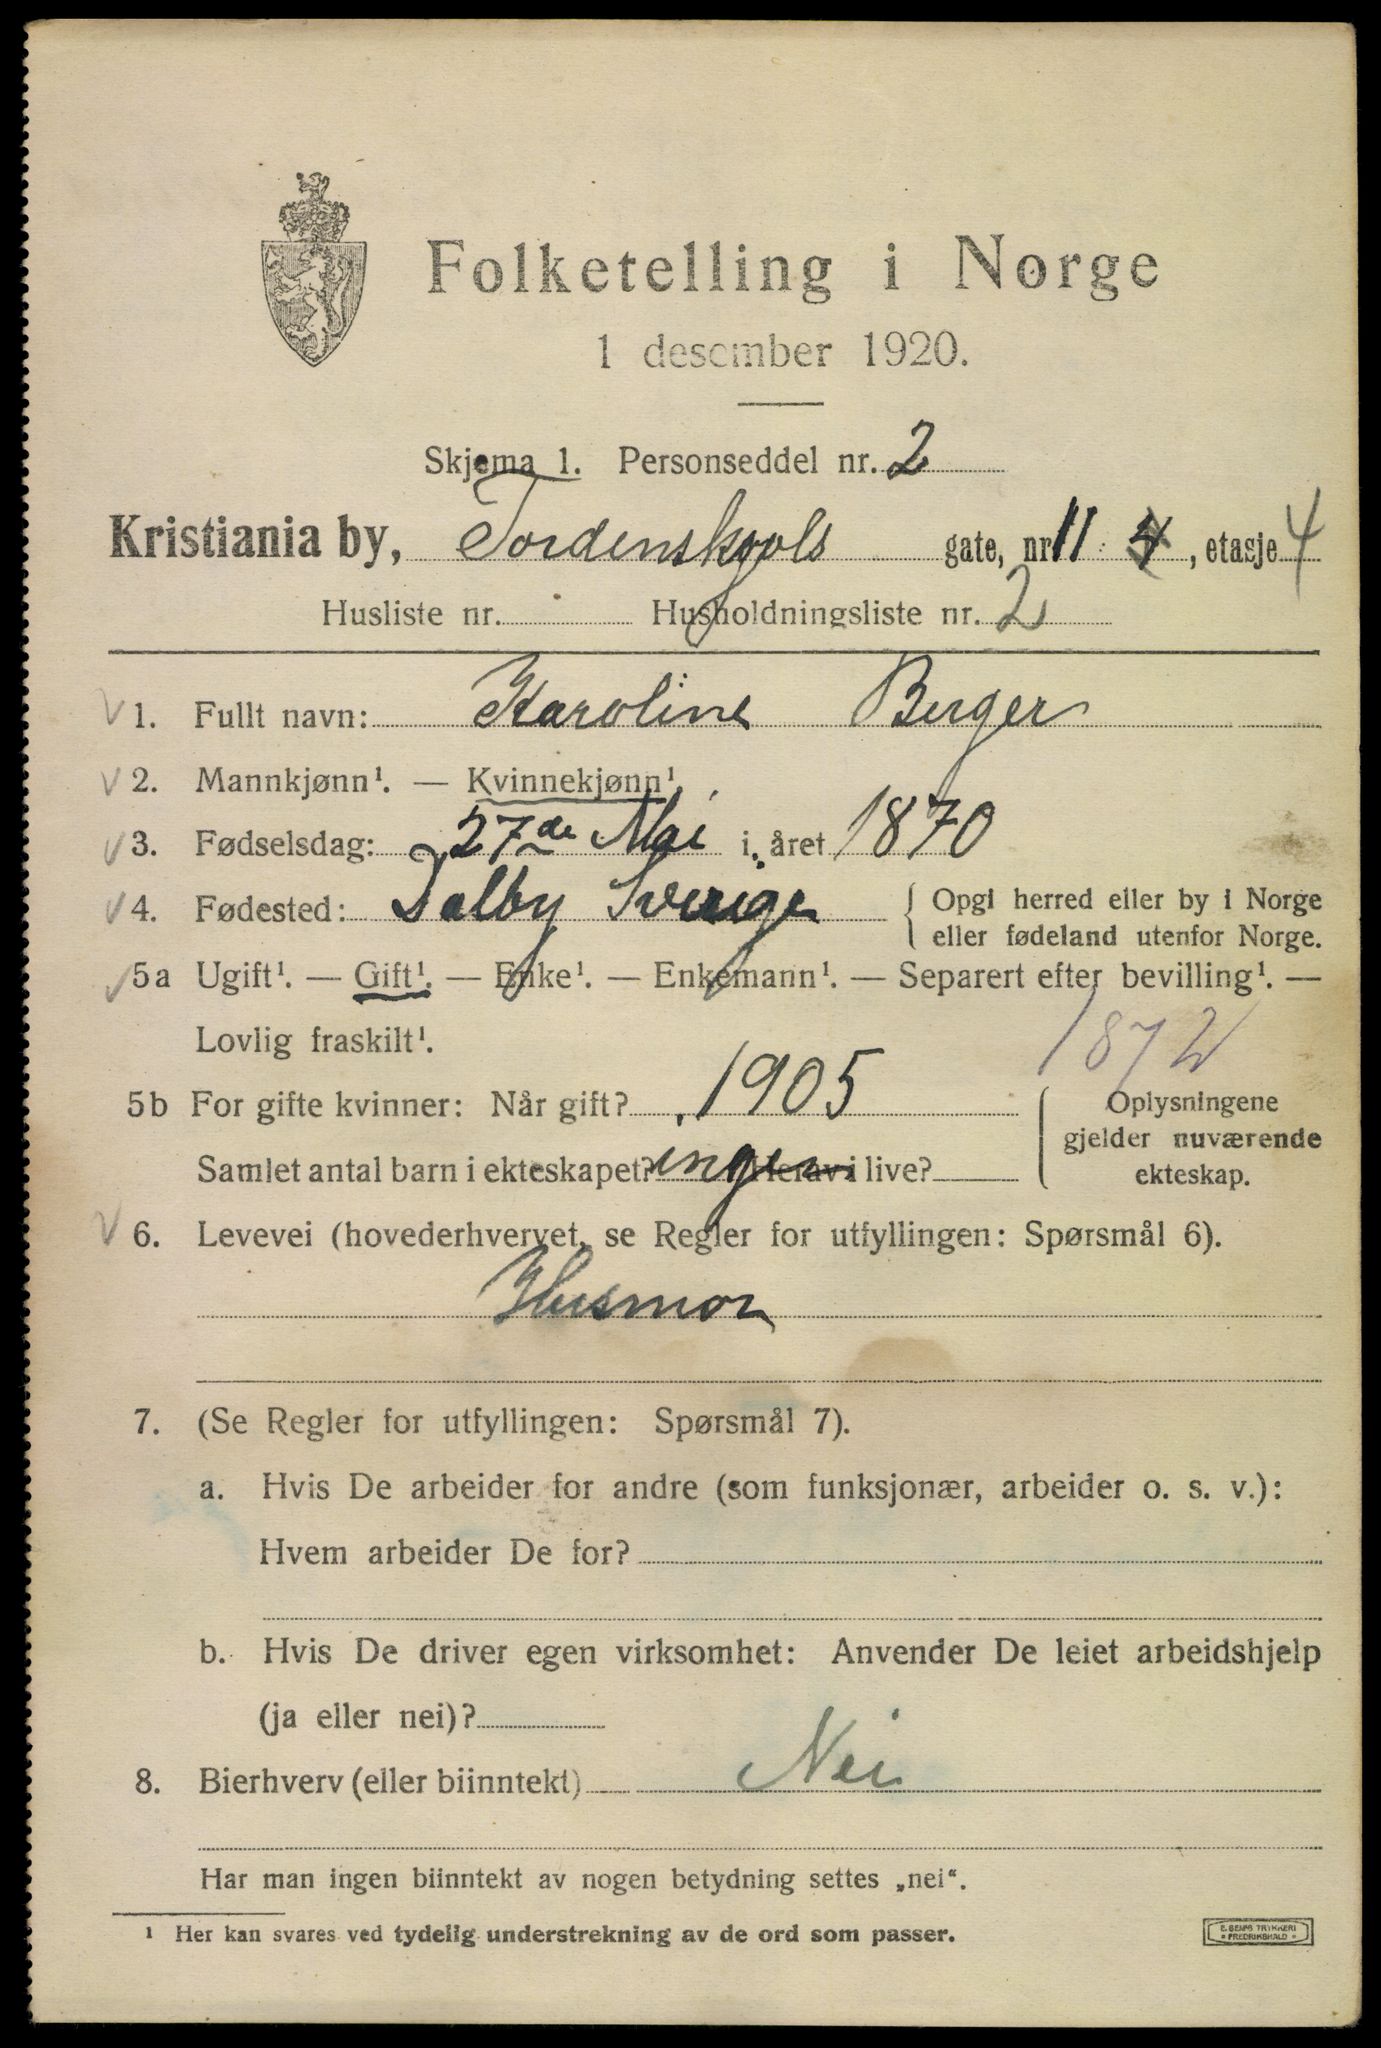 Folketelling i Norge
1 desember 1920.
Skjema 1. Personseddel nr. 2
Kristiania by, Tordenskjols gate, nr 11 4, etasje 4
Husliste nr. Husholdningsliste nr. 2
V 1. Fullt navn: Karoline Berger
V 2. Mannkjønn¹. — Kvinnekjønn¹.
V 3. Fødselsdag: 27de Mai i året 1870
V 4. Fødested: Dalby Sverige { Opgi herred eller by i Norge
eller fødeland utenfor Norge.
V 5a Ugift¹. — Gift¹. — Enke¹. — Enkemann¹. — Separert efter bevilling¹. —
Lovlig fraskilt¹. 1872
5b For gifte kvinner: Når gift? 1905 { Oplysningene
gjelder nuværende
Samlet antal barn i ekteskapet? ingen Herav i live? ekteskap.
V 6. Levevei (hovederhvervet, se Regler for utfyllingen: Spørsmål 6).
Husmor
7. (Se Regler for utfyllingen: Spørsmål 7).
a. Hvis De arbeider for andre (som funksjonær, arbeider o. s. v.):
Hvem arbeider De for?
b. Hvis De driver egen virksomhet: Anvender De leiet arbeidshjelp
(ja eller nei)?
8. Bierhverv (eller biinntekt) Nei
Har man ingen biinntekt av nogen betydning settes „nei“.
¹ Her kan svares ved tydelig understrekning av de ord som passer.
E. SEMS TRYKKERI
• FREDRIKSHALD •